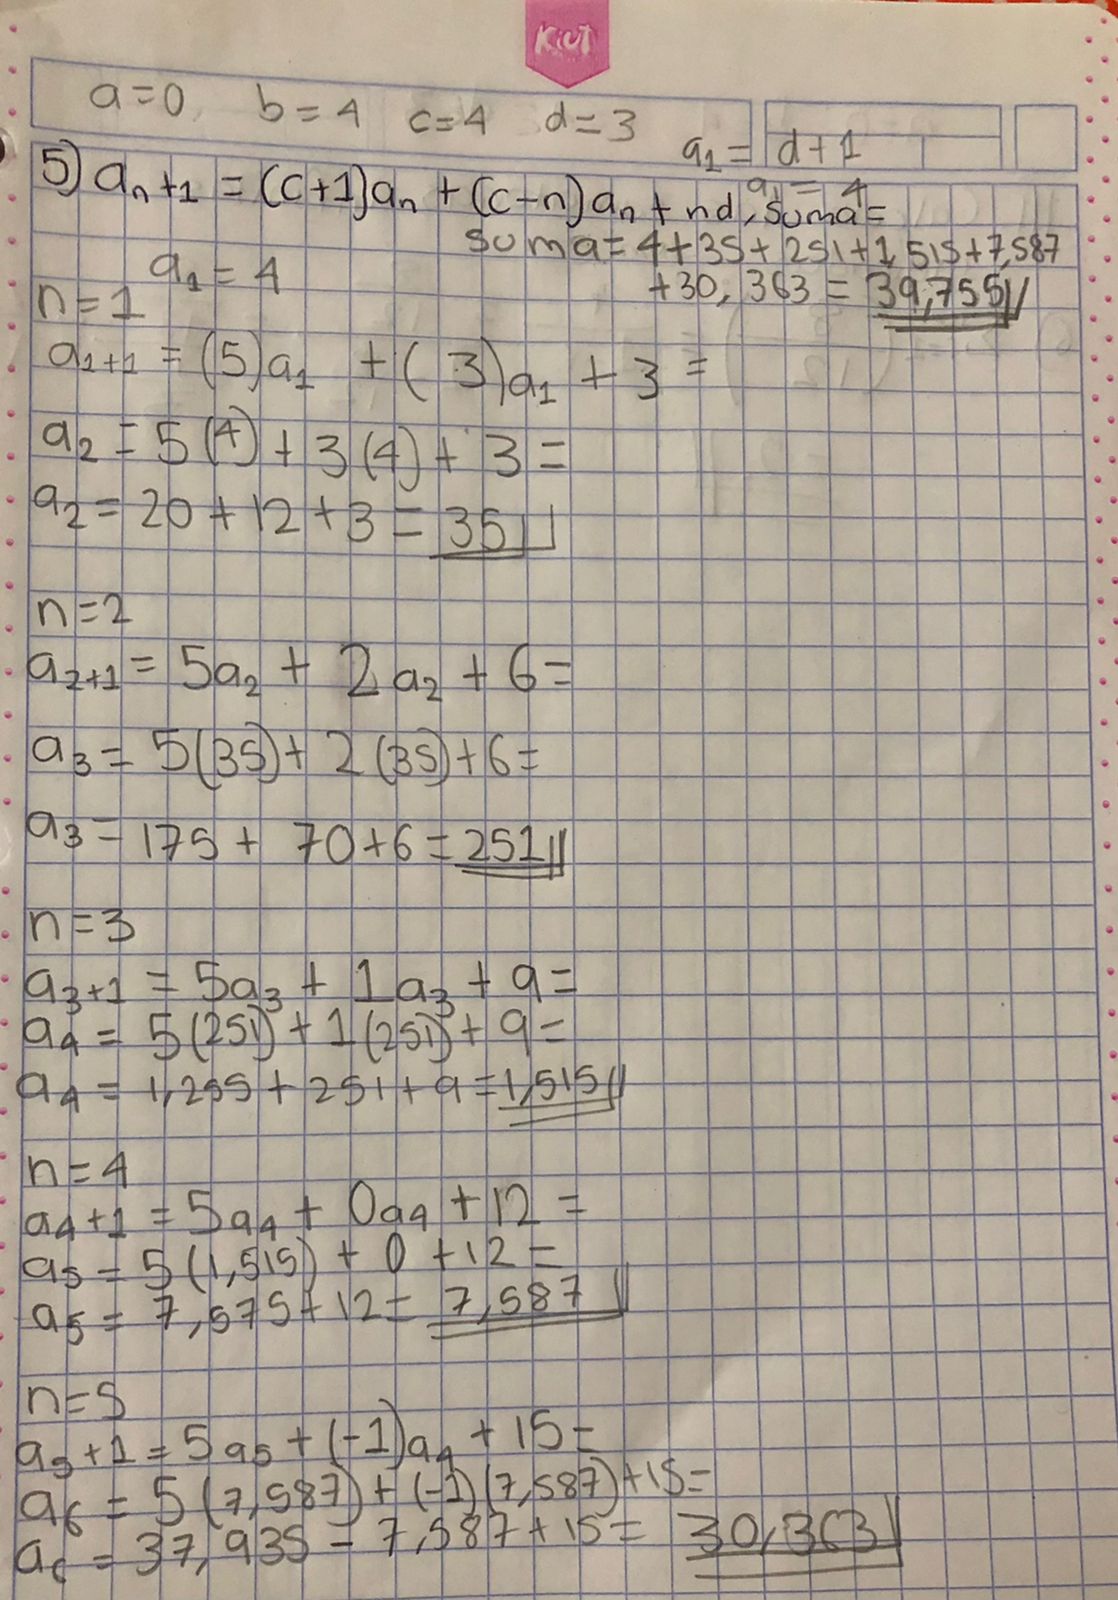 KIUT
a=0 b=4 c=4 d=3
a₁ = d+1
a₁ = 4
5) aₙ₊₁ = (c+1)aₙ + (c-n)aₙ + nd, suma=
suma=4+35+251+1,515+7,587
+30,363 = 39,755
a₁ = 4
n=1
a₁₊₁ = (5)a₁ + (3)a₁ + 3 =
a₂ = 5(4) + 3(4) + 3 =
a₂ = 20+12+3 = 35
n=2
a₂₊₁ = 5a₂ + 2a₂ + 6=
a₃ = 5(35)+ 2(35)+6=
a₃ = 175 + 70+6=251
n=3
a₃₊₁ = 5a₃ + 1a₃ + 9=
a₄ = 5(251) + 1(251) + 9=
a₄ = 1,255 + 251 + 9 = 1,515
n=4
a₄+1 = 5a₄ + 0a₄ +12 =
a₅ = 5(1,515) + 0 +12 =
a₅ = 7,575+12= 7,587
n=5
a₅+1 = 5a₅ + (-1)a₄ + 15=
a₆ = 5(7,587) + (-1)(7,587)+15=
a₆ = 37,935 - 7,587 + 15 = 30,363